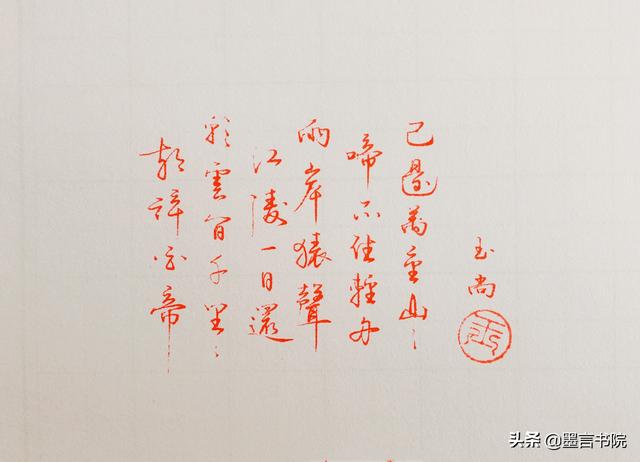 朝辭白帝
彩雲間千里
江陵一日還
兩岸猿聲
啼不住輕舟
已過萬重山
玉尚
头条 @墨言书院